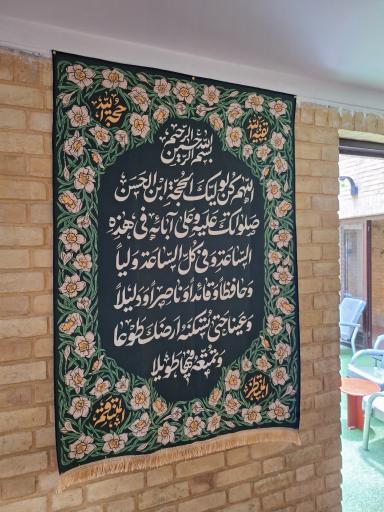 حجة الله
بقية الله
بسم الله الرحمن الرحيم
اللهم كن لوليك الحجة ابن الحسن
صلواتك عليه وعلى آبائه في هذه
الساعة وفي كل الساعة ولياً
وحافظاً وقائداً وناصراً ودليلاً
وعيناً حتى تسكنه أرضك طوعاً
وتمتعه فيها طويلا